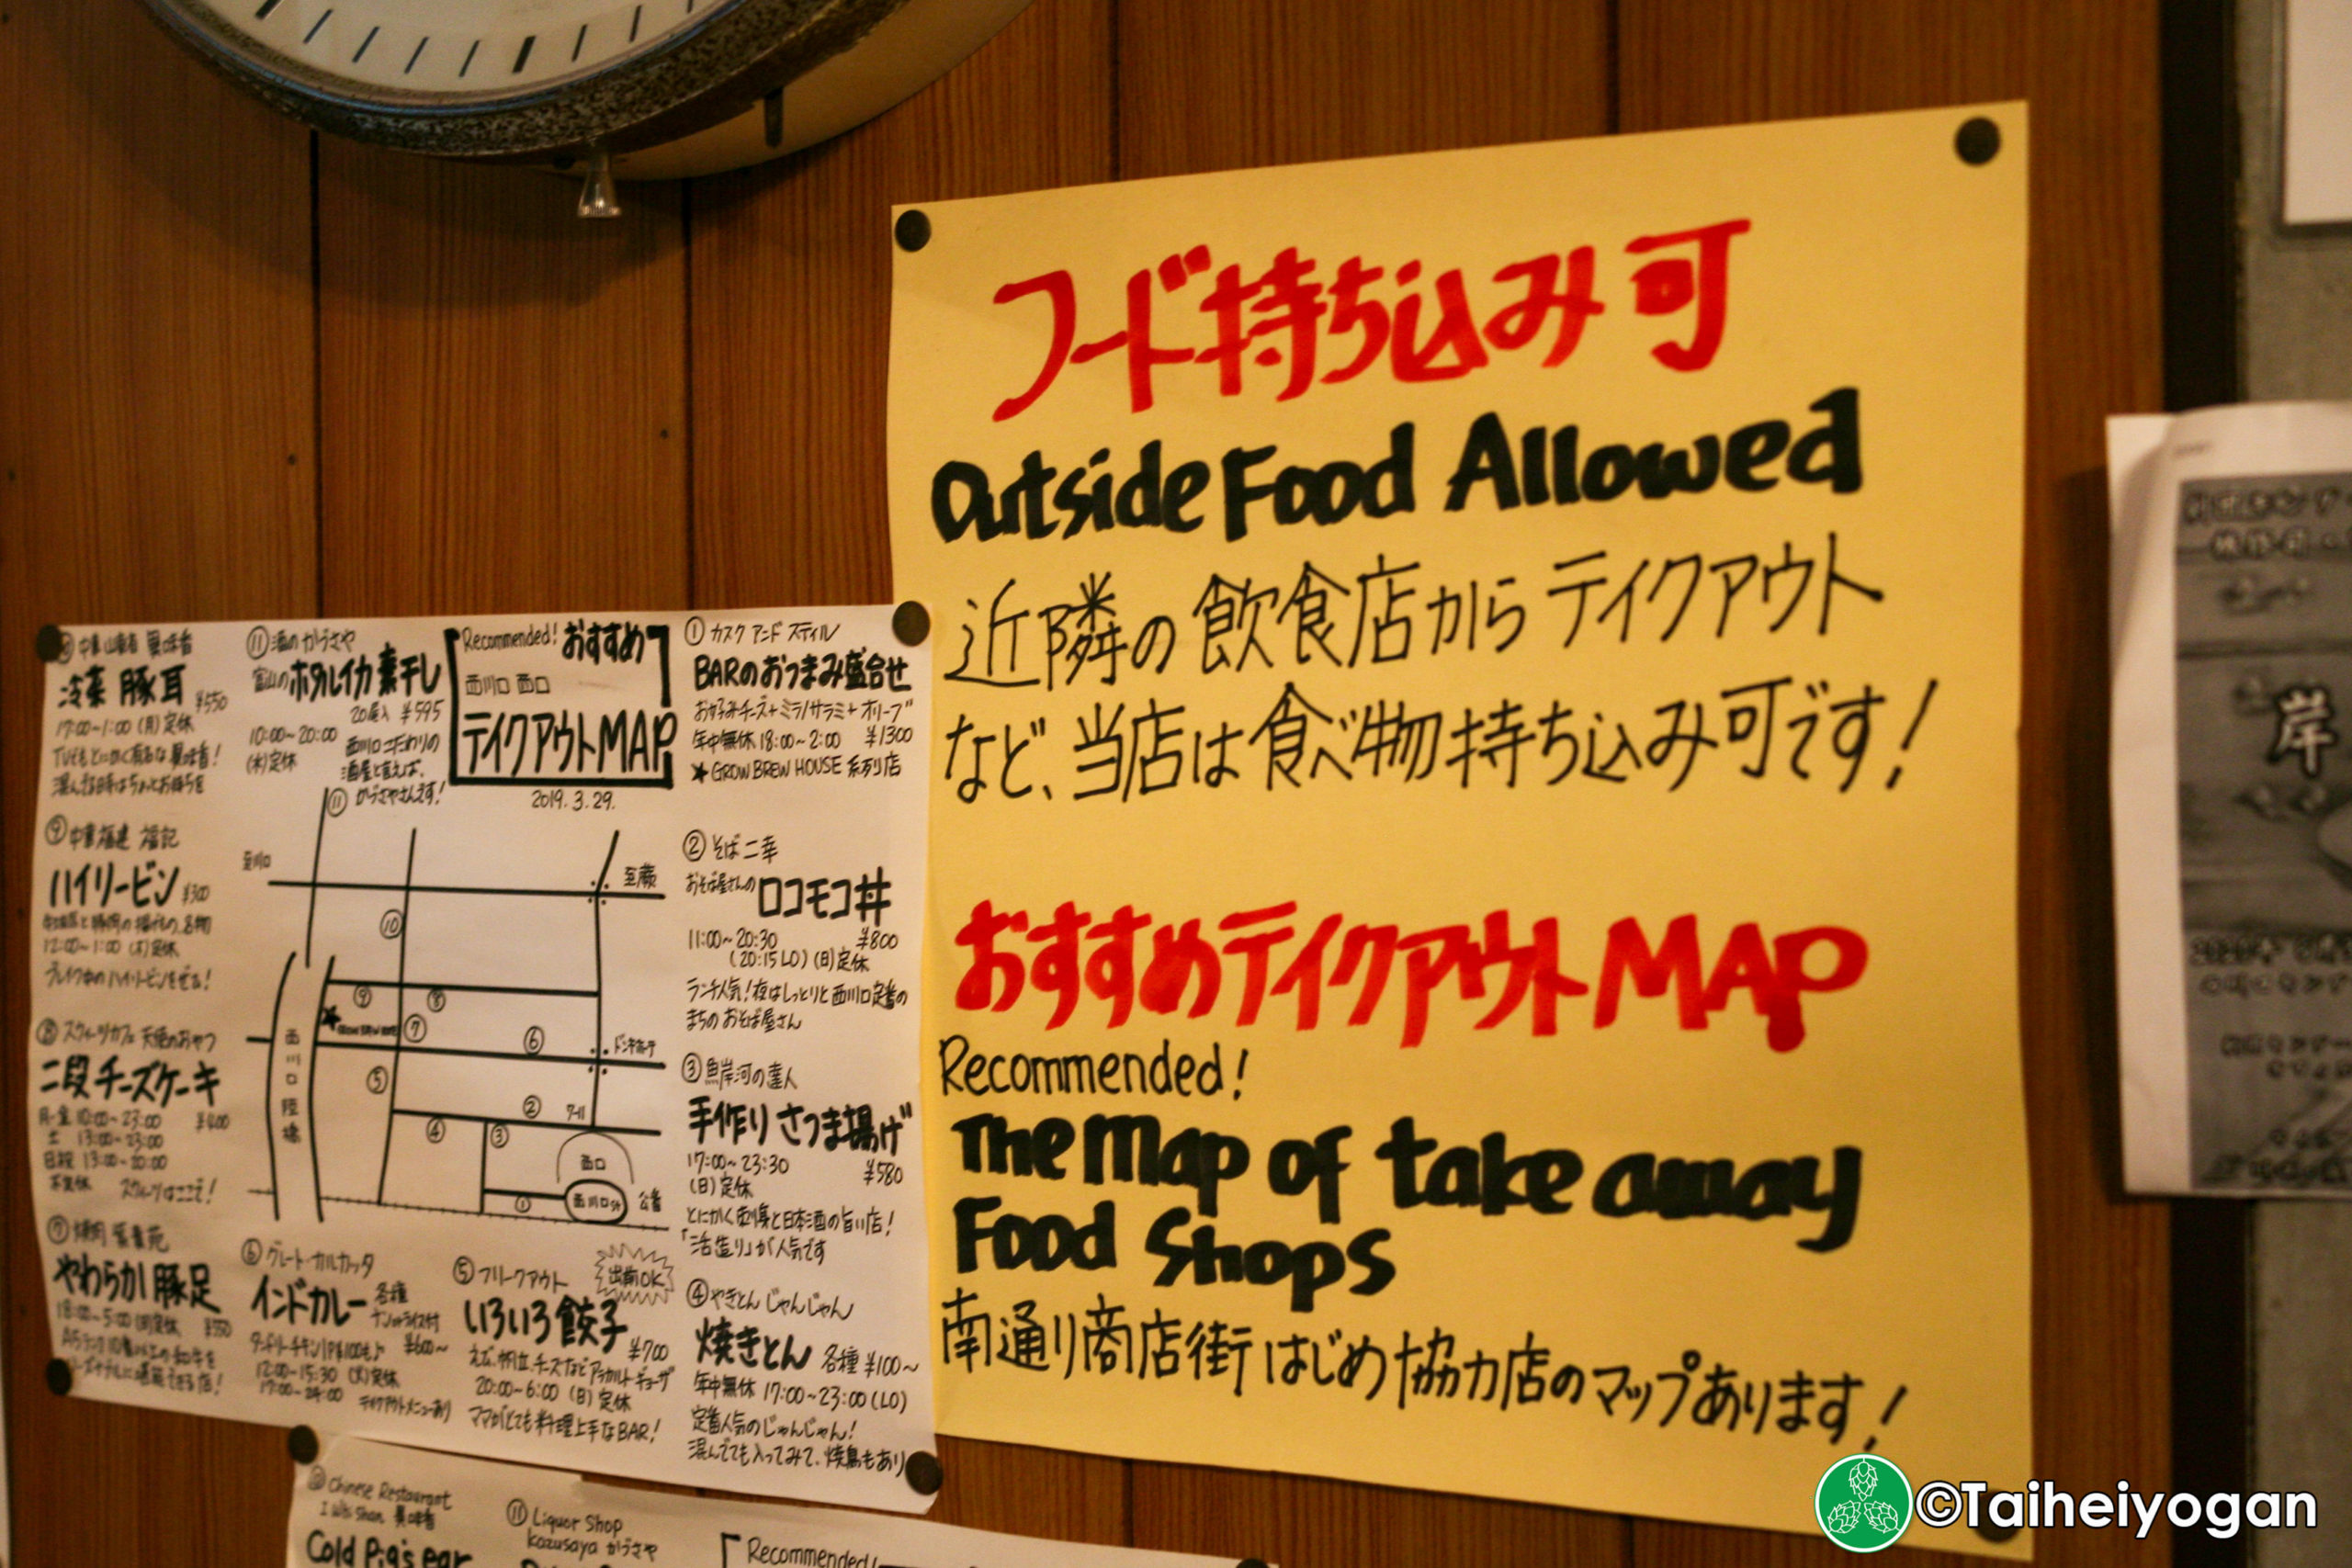 フード持ち込み可
Outside Food Allowed
近隣の飲食店からテイクアウト
など、当店は食べ物持ち込み可です!
おすすめテイクアウトMAP
Recommended!
The Map of take away
Food Shops
南通り商店街はじめ協力店のマップあります!
Recommended! おすすめ
西川口 西口
テイクアウトMAP
2019.3.29.
① カスク アンド スティル
BARのおつまみ盛合せ
お好みチーズ+ミラノサラミ+オリーブ
年中無休 18:00~2:00 ¥1300
★GROW BREW HOUSE 系列店
② そば 二幸
おそば屋さんの ロコモコ丼
11:00~20:30 ¥800
(20:15 LO) (日)定休
ランチ人気!夜はしっとりと西川口定番の
まちのおそば屋さん
③ 魚岸河の達人
手作り さつま揚げ
17:00~23:30 ¥580
(日)定休
とにかく刺身と日本酒の旨い店!
「活造り」が人気です
④ やきとん じゃんじゃん
焼きとん 各種 ¥100~
年中無休 17:00~23:00 (LO)
定番人気のじゃんじゃん!
混んでても入ってみて、焼鳥もあり
⑤ フリークアウト
出前OK
いろいろ餃子 ¥700
えび、帆立、チーズなどアラカルトギョーザ
20:00~6:00 (日)定休
ママがとても料理上手なBAR!
⑥ グレート・カルカッタ
インドカレー 各種
ナンorライス付
¥600~
タンドリーチキン1P¥100も♪
12:00~15:30 (火)定休
17:00~24:00 テイクアウトメニューあり
やわらか豚足
18:00~5:00
スウィーツカフェ 天使のおやつ
二段チーズケーキ
月-金 10:00~23:00 ¥400
土 13:00~23:00
日祝 13:00~20:00
スウィーツはここで!
⑨ 中華福建 福記
ハイリービン ¥300
12:00~1:00 (木)定休
冷菜 豚耳 ¥550
17:00~1:00 (月)定休
⑪ 酒のかづさや
富山のホタルイカ素干し
20尾入 ¥595
10:00~20:00
(水)定休
西川口こだわりの
酒屋と言えば、
かづさやさんです!
⑪
至川口
至蕨
⑩
⑨
⑧
★GROW BREW HOUSE
⑦
⑥
ドンキホーテ
⑤
②
④
③
西川口陸橋
西口
①
西川口
Chinese Restaurant
Cold Pig's ear
⑪ Liquor Shop
Kazusaya かづさや
Recommended!
岸
©Taiheiyogan